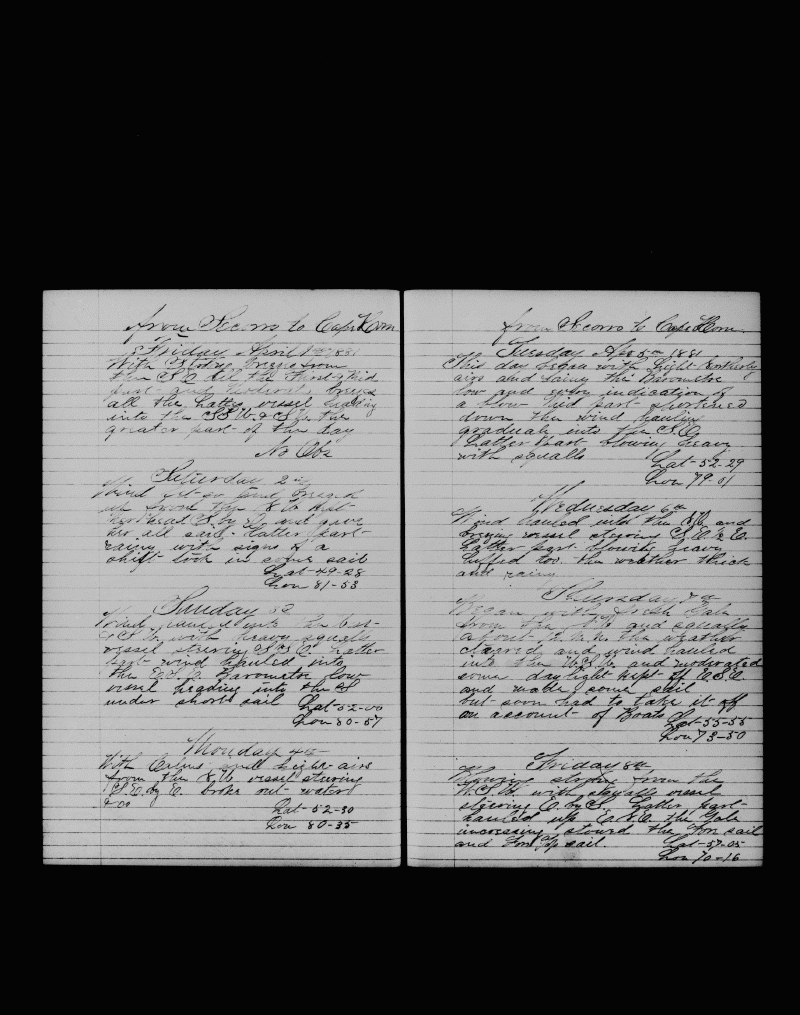 from Socorro to Cape Horn
Friday April 1st 1881
With Strong Breeze from
the S.E. till the First & Mid
part and moderate breeze
all the Latter vessel heading
into the S.S.W. & S.W. the
greater part of the day
No Obs
Saturday 2nd
Wind and
up from the N to
S by E and gave
her all sail. Latter part
rainy with signs of a
shift took in some sail
Lat-49-28
Lon 81-53
Sunday 3d
Wind into the West
& S.W. with heavy squalls
vessel steering S.S.E. Latter
part wind hauled into
the Barometer low
vessel heading into the S
under short sail Lat-52-00
Lon 80-57
Monday 4th
With Calms and light airs
from the N.W. vessel steering
S.E. by E. broke out water
&oo
Lat-52-30
Lon 80-35
from Socorro to Cape Horn
Tuesday Apr 5th 1881
This day began with light Northerly
airs and rainy the Barometer
low and every indication of
a blow Mid part shortened
down the wind hauling
gradualy into the S.E.
Latter part blowing heavy
with squalls Lat-52-29
Lon 79-01
Wednesday 6th
Wind hauled into the S.W. and
vessel steering S.E. & E.
Latter part blowing heavy
luffed too. the weather thick
and rainy
Thursday 7th
Began with fresh Gale
from the and squalls
about the weather
cleared and wind hauled
into the W.S.W. and moderated
some daylight kept off E.S.E.
and made some sail
but soon had to take it off
on account of Boats Lat-55-55
Lon 73-50
Friday 8th
Blowing strong from the
W.S.W. with squalls vessel
steering E. by S. Latter part
hauled up the Gale
increasing stowed the Fore sail
and Fore Top sail. Lat-57-05
Lon 70-16